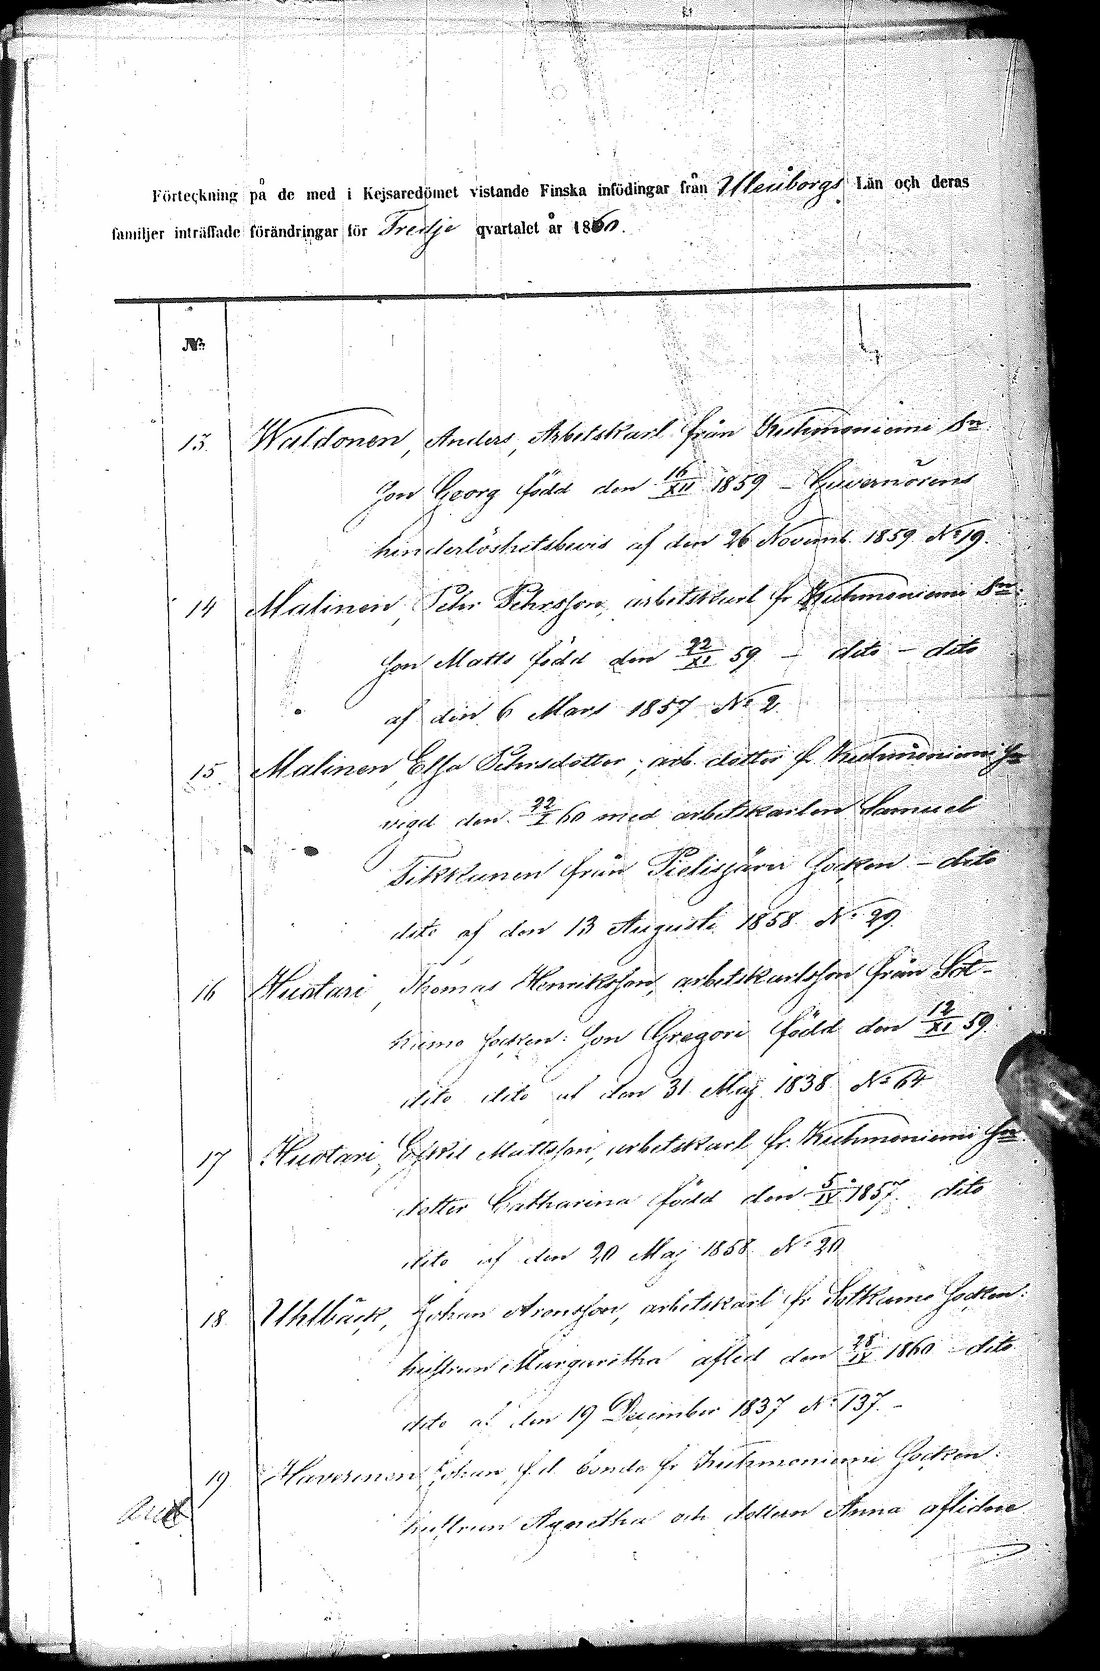 Förteckning på de med i Kejsaredömet vistande Finska infödingar från Uleåborgs Län och deras
familjer inträffade förändringar för Tredje qvartalet år 1860.
No
13. Waldonen, Anders, Arbetskarl från Kuhmoniemi Sn
Son Georg född den 16/XII 1859 – Guvernörens
hinderlöshetsbevis af den 26 Novemb. 1859 No 19.
14 Malinen, Pehr Pehrsson, arbetskarl fr Kuhmoniemi Sn:
Son Matts född den 22/XI 59 – dito – dito
af den 6 Mars 1857 No 2
15 Malinen, Elsa Pehrsdotter, arb. dotter fr Kuhmoniemi Sn
vigd den 22/I 60 med arbetskarlen Samuel
Tikkanen från Pielisjärvi Socken – dito
dito af den 13 Augusti 1858 No 29.
16 Huotari, Thomas Henriksson, arbetskarlsson från Sot-
kamo Socken: Son Gregori född den 12/XI 59.
dito dito af den 31 Maj 1838 No 64
17 Huotari, Eskil Mattsson, arbetskarl fr. Kuhmoniemi Sn
dotter Catharina född den 5/IV 1857. dito
dito af den 20 Maj 1858 No 20
18. Uhlbäck, Johan Aronsson, arbetskarl fr Sotkamo Socken:
hustrun Margaretha afled den 28/IV 1860 – dito
dito af den 19 December 1837 No 137. –
19 Haverinen Johan f.d. bonde fr Kuhmoniemi Socken:
hustrun Agnetha och dottern Anna aflidne